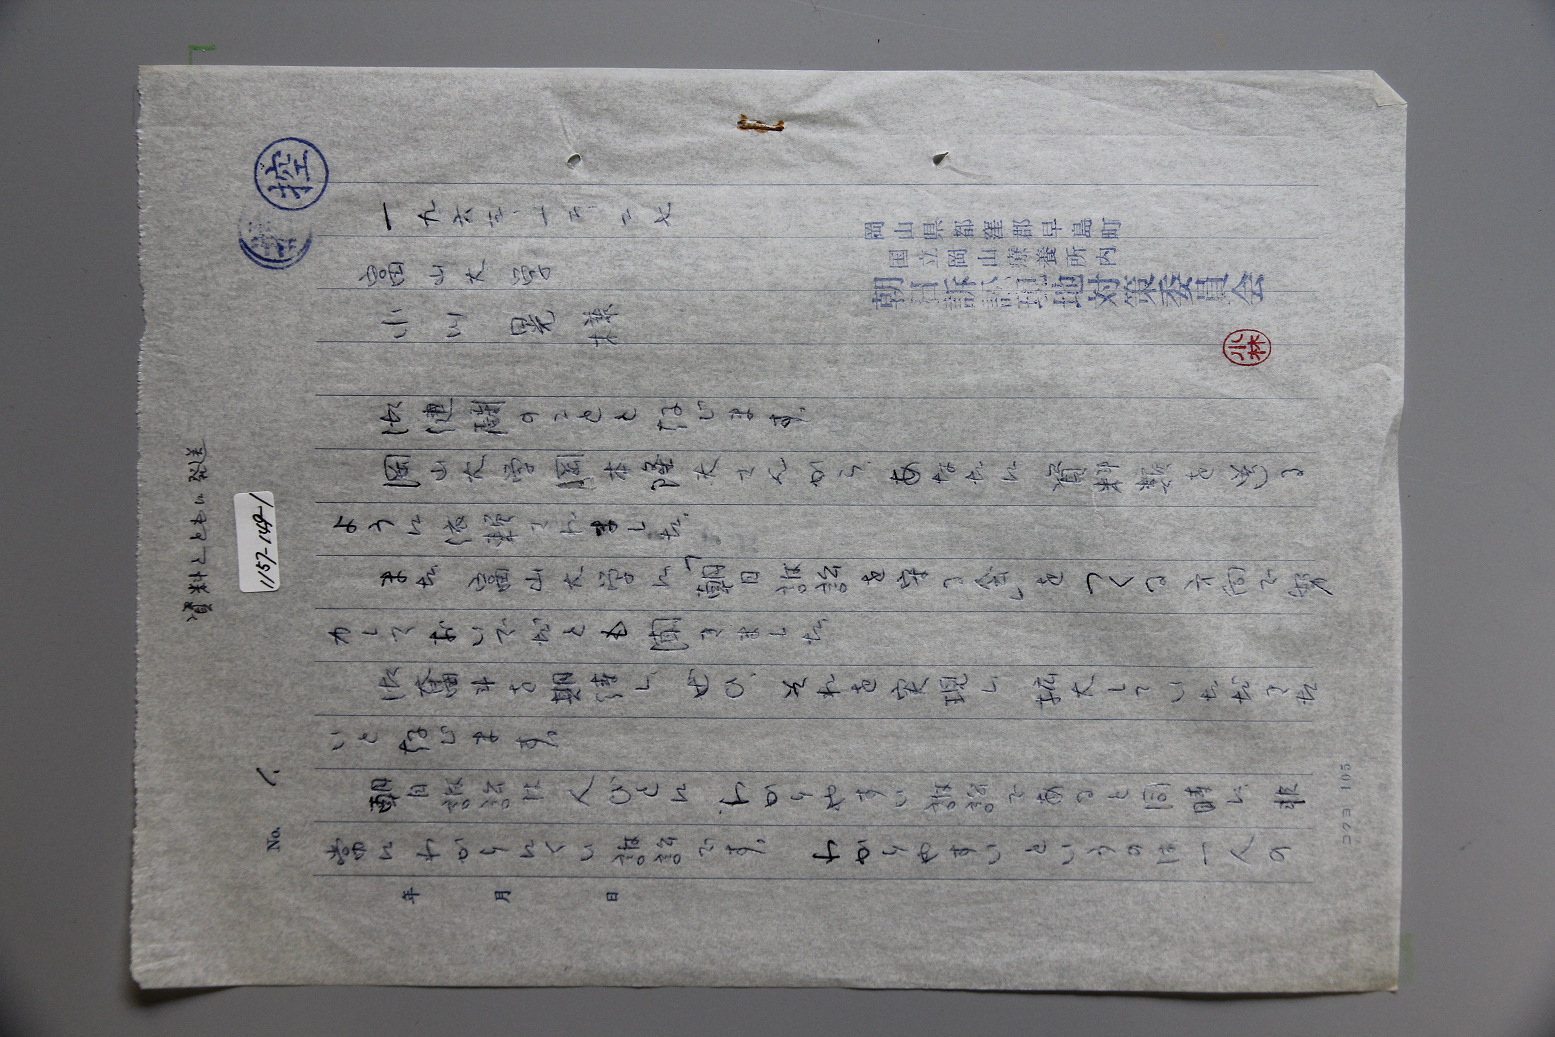 資料とともに発送
1157-149-1
控
No. 1.
一九六三、十二、二七
岡山県都窪郡早島町
国立岡山療養所内
朝日訴訟現地対策委員会
小林
富山大学
小川 晃 様
御健闘のことと存じます。
岡山大学岡本隆夫さんから、あなたに資料類を送る
ように依頼されました。
また富山大学に「朝日訴訟を守る会」をつくる方向で努
力しておいでだとも聞きました。
御奮斗を期待し、ぜひ、それを実現し拡大していただきた
いと存じます。
朝日訴訟は人びとにわかりやすい訴訟であると同時に、非
常にわかりにくい訴訟です。わかりやすいというのは一人の
年 月 日
コクヨ 105